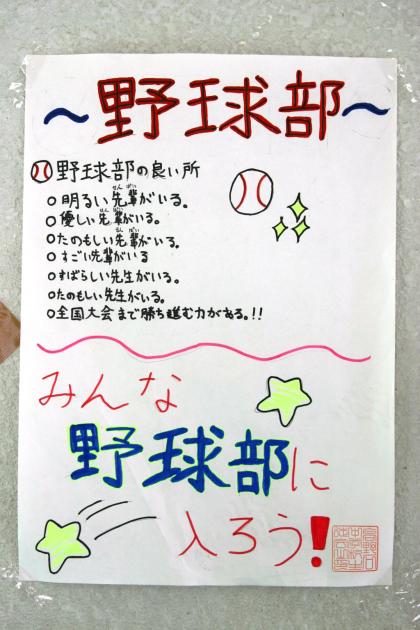 ~野球部~
野球部の良い所
○明るい先輩がいる。
○優しい先輩がいる。
○たのもしい先輩がいる。
○すごい先輩がいる
○すばらしい先生がいる。
○たのもしい先生がいる。
○全国大会まで勝ち進む力がある。!!
みんな
野球部に
入ろう!